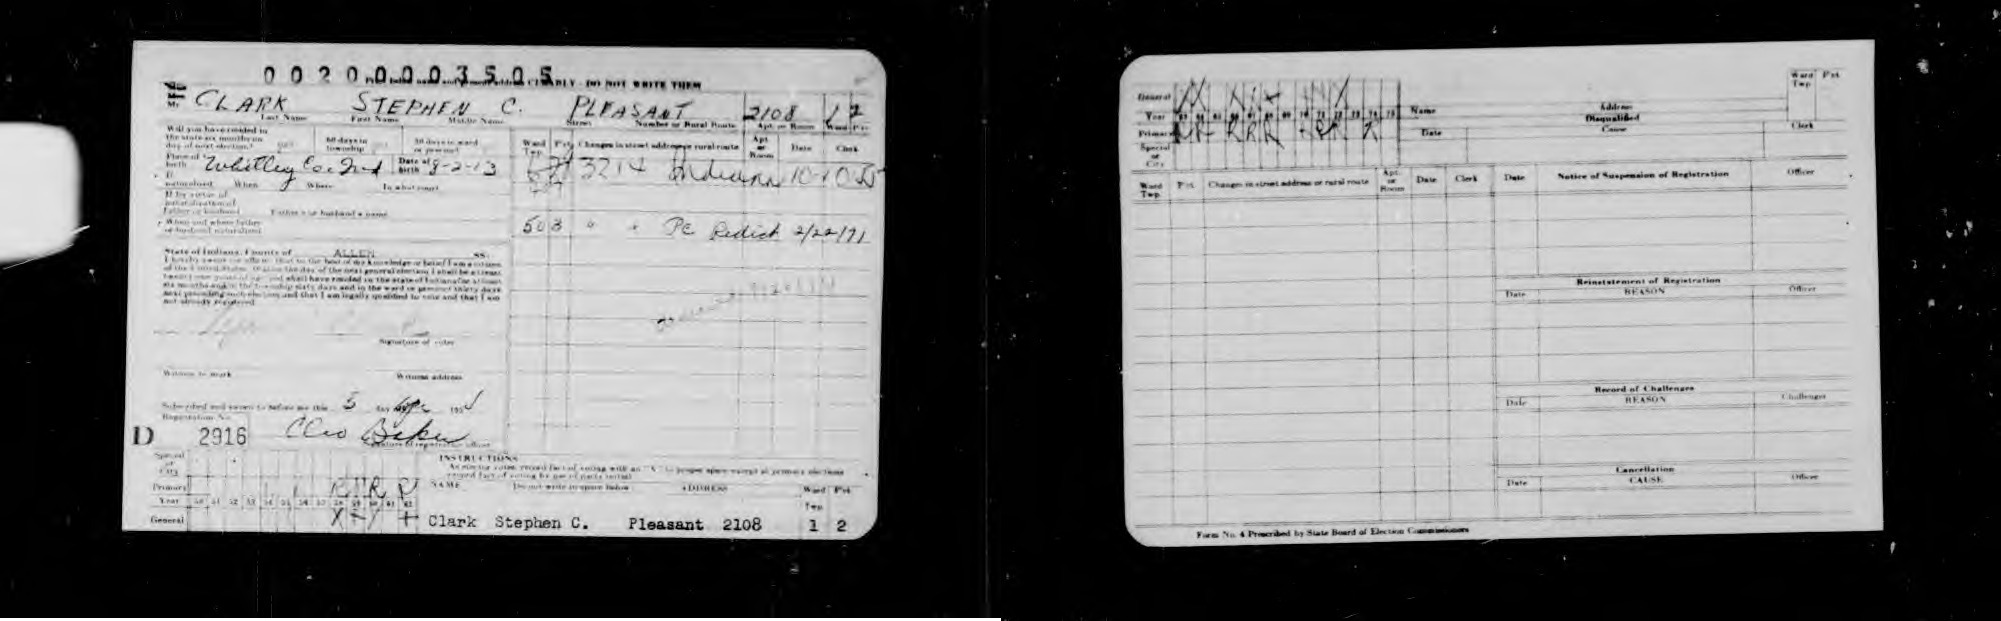 00200003505
CLEARLY - DO NOT WRITE THEM
Mr. CLARK STEPHEN C. PLEASANT 2108 1 2
Last Name First Name Middle Name Street Number or Rural Route Apt. or Room Ward Pct.
Will you have resided in
the state six months on
day of next election? 60 days in township 30 days in ward or precinct
Place of birth Whitley Co. Ind Date of birth 8-2-13
If naturalized When Where In what court
If by virtue of
naturalization of
Father or husband Father's or husband's name
When and where father
or husband naturalized
Ward Twp. Pct. Changes in street address or rural route Apt. or Room Date Clerk
3214 Indiana 10-10-55
503 " " Pc Redist 2/22/71
State of Indiana, County of ALLEN SS:
I hereby swear (or affirm) that to the best of my knowledge or belief I am a citizen
of the United States, that on the day of the next general election I shall be at least
twenty-one years of age and shall have resided in the state of Indiana for at least
six months and in the township sixty days and in the ward or precinct thirty days
next preceding such election and that I am legally qualified to vote and that I am
not already registered.
Signature of voter
Witness to mark Witness address
Subscribed and sworn to before me this 5 day of 195
Registration No.
D 2916 Cleo Baker
Signature of registration officer
INSTRUCTIONS
As elector votes, record fact of voting with an "X" in proper space except at primary elections
record fact of voting by use of party initial
Special or City
Primary R R R
Year 50 51 52 53 54 55 56 57 58 59 60 61 62
General X
NAME Do not write in space below ADDRESS Ward Twp. Pct.
Clark Stephen C. Pleasant 2108 1 2
General
Year 63 64 65 66 67 68 69 70 71 72 73 74 75
Primary R R R R
Special or City
Name Address
Disqualified
Date Cause Clerk
Ward Twp. Pct.
Ward Twp. Pct. Changes in street address or rural route Apt. or Room Date Clerk
Date Notice of Suspension of Registration Officer
Reinstatement of Registration
Date REASON Officer
Record of Challenges
Date REASON Challenger
Cancellation
Date CAUSE Officer
Form No. 4 Prescribed by State Board of Election Commissioners